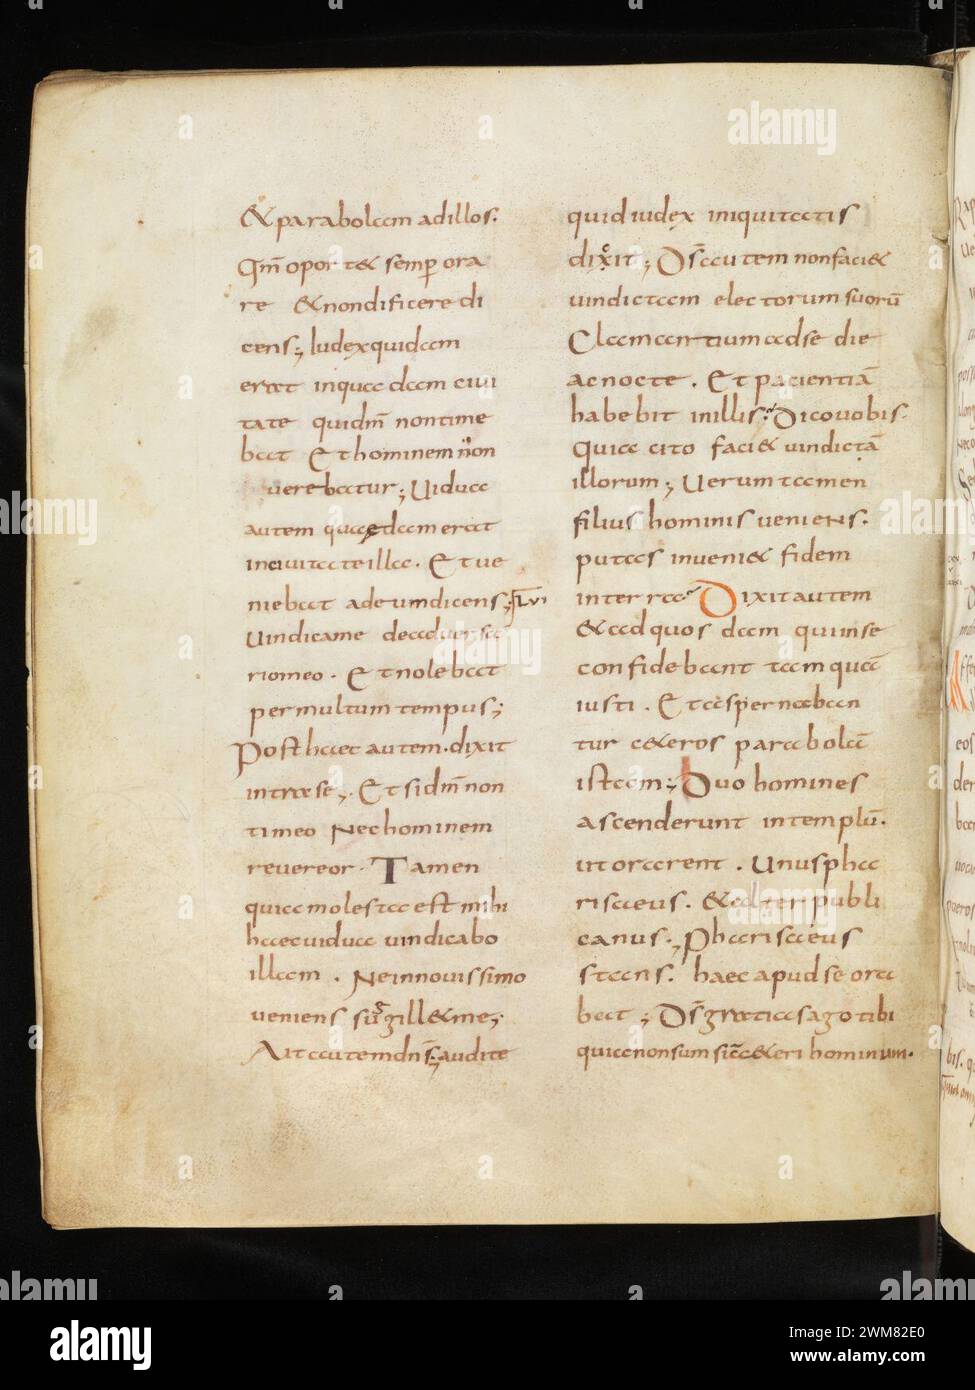 & parabolam ad illos.
Qm̄ oport& semp̄ ora
re & non dificere di
cens; Iudex quidam
erat in quadam civi
tate quidm̄ non time
bat Et hominem non
verebatur; Uidua
autem quaedam erat
in civitate illa. Et ve
niebat ad eum dicens;
Uindica me de adversa
rio meo. Et nolebat
per multum tempus;
Post haec autem. dixit
intra se; Et si dm̄ non
timeo Nec hominem
revereor. Tamen
quia molesta est mihi
haec vidua vindicabo
illam. Ne in novissimo
veniens sugill& me;
Ait autem dn̄s; audite
quid iudex iniquitatis
dixit; Ds̄ autem non faci&
vindictam electorum suorū
Clamantium ad se die
ac nocte. Et pacientiā
habebit in illis; Dico vobis.
quia cito faci& vindictā
illorum; Uerum tamen
filius hominis veniens.
putas inveni& fidem
in terra; Dixit autem
& ad quosdam qui in se
confidebant tamquā
iusti. Et aspernaban
tur c&eros parabolā
istam; Duo homines
ascenderunt in templū.
ut orarent. Unus pha
risaeus. & alter publi
canus.; Pharisaeus
stans. haec apud se ora
bat; Ds̄ gratias ago tibi
quia non sum sic& c&eri hominum.
alamy
Image ID: 2WM82E0
www.alamy.com